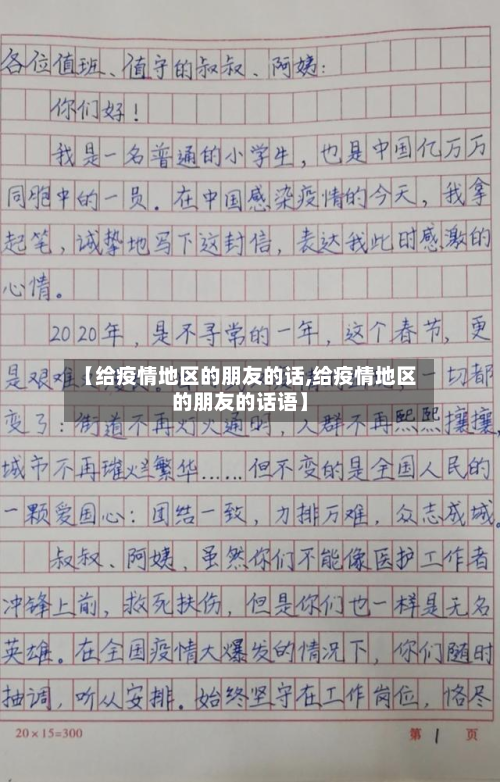 各位值班、值守的叔叔、阿姨：
你们好！
我是一名普通的小学生，也是中国亿万万
同胞中的一员。在中国感染疫情的今天，我拿
起笔，诚挚地写下这封信，表达我此时感激的
心情。
2020年，是不寻常的一年，这个春节，更
是艰难
一切都
【给疫情地区的朋友的话,给疫情地区
的朋友的话语】
变了：街道不再灯火通明，人群不再熙熙攘攘，
城市不再璀烂繁华……但不变的是全国人民的
一颗爱国心：团结一致，力排万难，众志成城。
叔叔、阿姨，虽然你们不能像医护工作者
冲锋上前，救死扶伤，但是你们也一样是无名
英雄。在全国疫情大爆发的情况下，你们随时
抽调，听从安排。始终坚守在工作岗位，恪尽
20×15=300
第1页